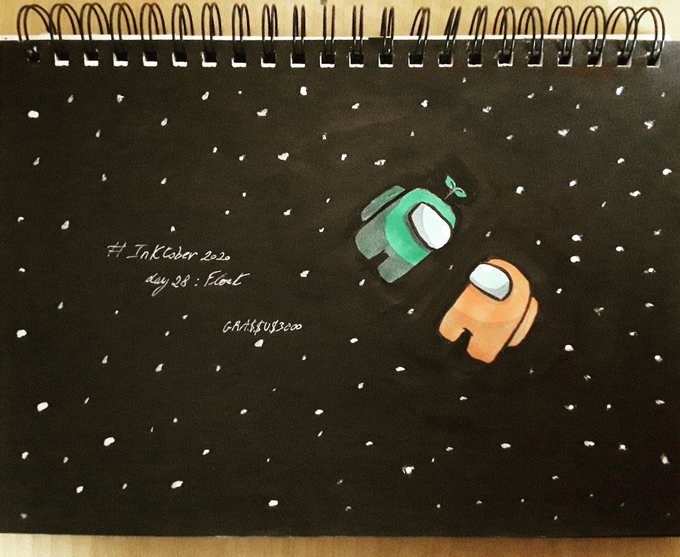 # InKtober 2020
day 28 : Float
GRA$$U$3000